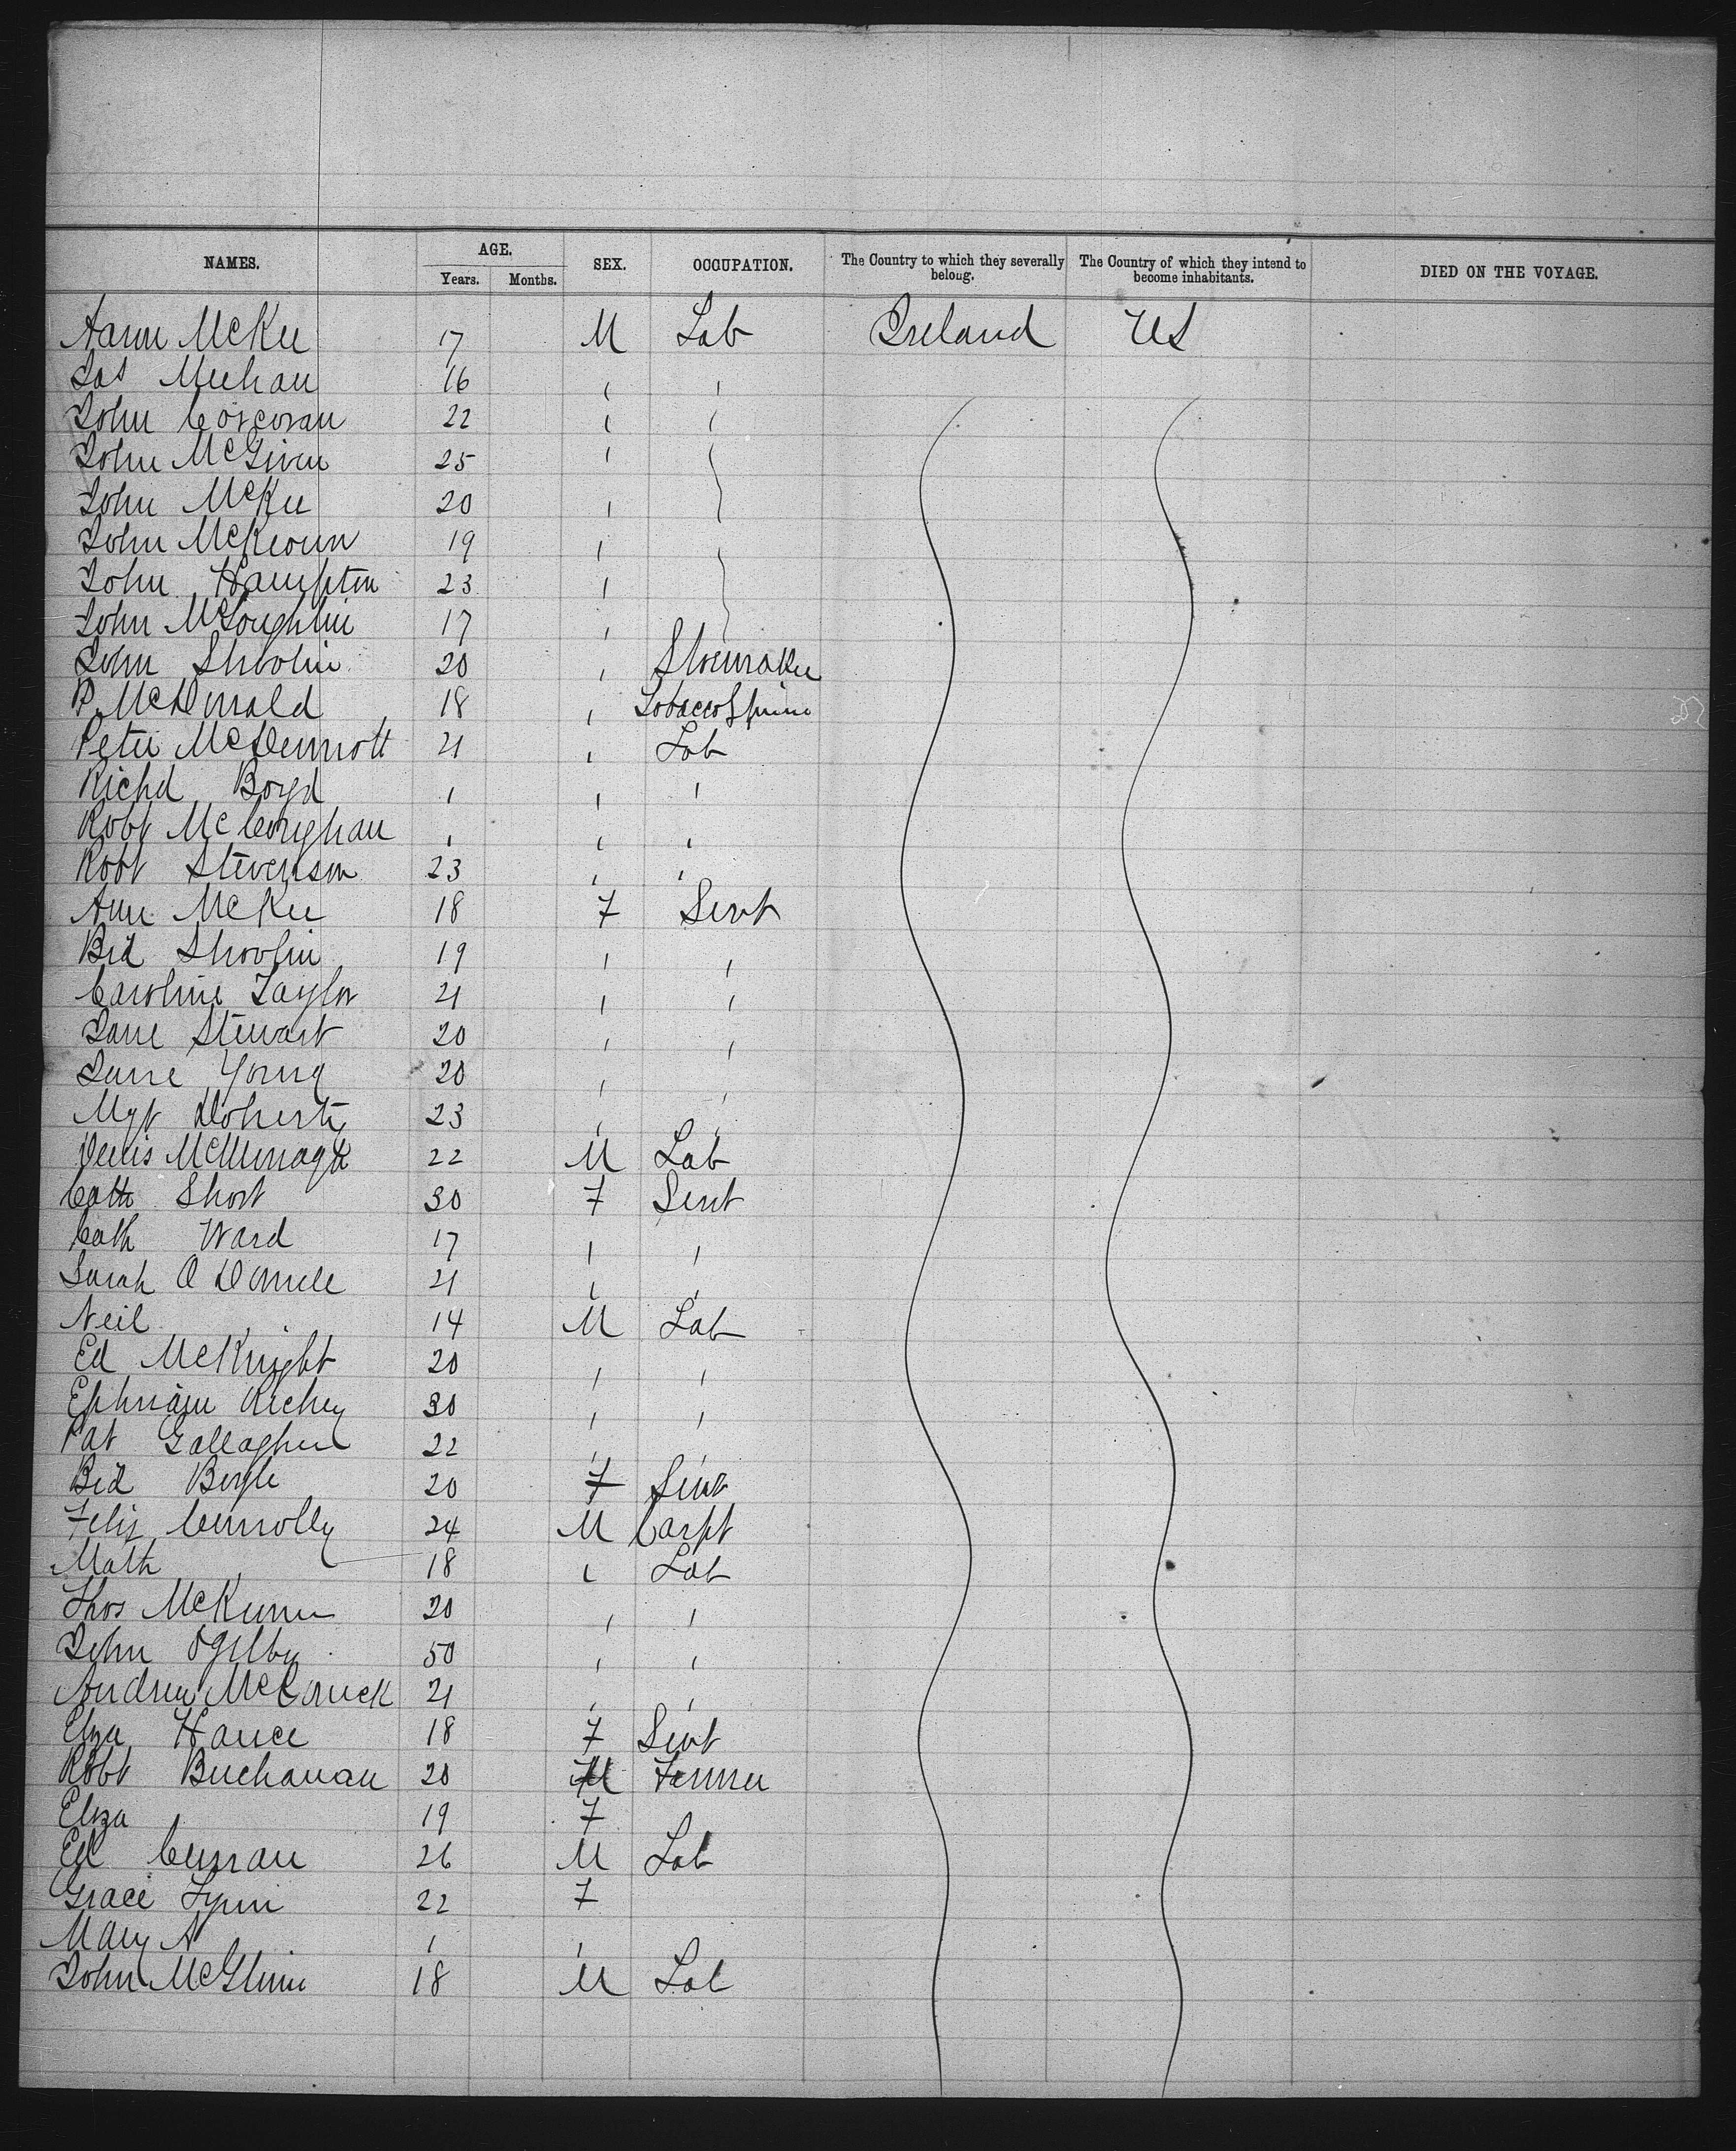 NAMES. AGE. SEX. OCCUPATION. The Country to which they severally belong. The Country of which they intend to become inhabitants. DIED ON THE VOYAGE.
Years. Months.
Aaron McKee 17 M Lab Ireland US
Jas Meehan 16 " "
John Corcoran 22 " "
John McGiven 25 "
John McKee 20 "
John McKeown 19 "
John Hampton 23 "
John McLoughlin 17 "
John Shovlin 20 " Shoemaker
P McDonald 18 " Tobacco Spinner
Peter McDermott 21 " Lab
Richd Boyd " " "
Robt McConghan " " "
Robt Stevenson 23 " "
Ann McKee 18 F Servt
Bid Shovlin 19 " "
Caroline Taylor 21 " "
Jane Stewart 20 " "
Jane Young 20 " "
Mgt Doherty 23 " "
Denis McMonagle 22 M Lab
Cath Short 30 F Servt
Cath Ward 17 " "
Sarah O Donnell 21 " "
Neil " 14 M Lab
Ed McKnight 20 " "
Ephriam Richey 30 " "
Pat Gallagher 22 " "
Bid Boyle 20 F Servt
Felix Connolly 24 M Carpt
Math " 18 " Lab
Thos 20 " "
John Ogilby 50 " "
Andrew McCormick 21 " "
Eliza Hance 18 F Servt
Robt Buchanan 20 M Farmer
Eliza 19 F
Ed Curran 26 M Lab
Grace Lynn 22 F
Mary A " "
John McGlinn 18 M Lab